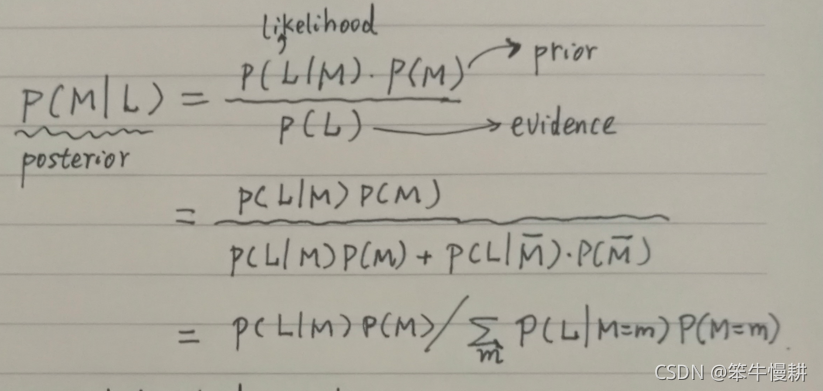 likelihood
P(M|L) = P(L|M)·P(M) / P(L)
prior
evidence
posterior
= P(L|M)P(M) / P(L|M)P(M) + P(L|M̄)·P(M̄)
= P(L|M)P(M) / ∑m P(L|M=m)P(M=m)
CSDN @笨牛慢耕